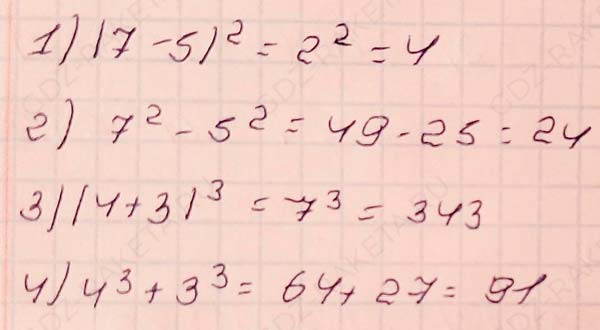 1) (7 - 5)² = 2² = 4
2) 7² - 5² = 49 - 25 = 24
3) (4 + 3)³ = 7³ = 343
4) 4³ + 3³ = 64 + 27 = 91